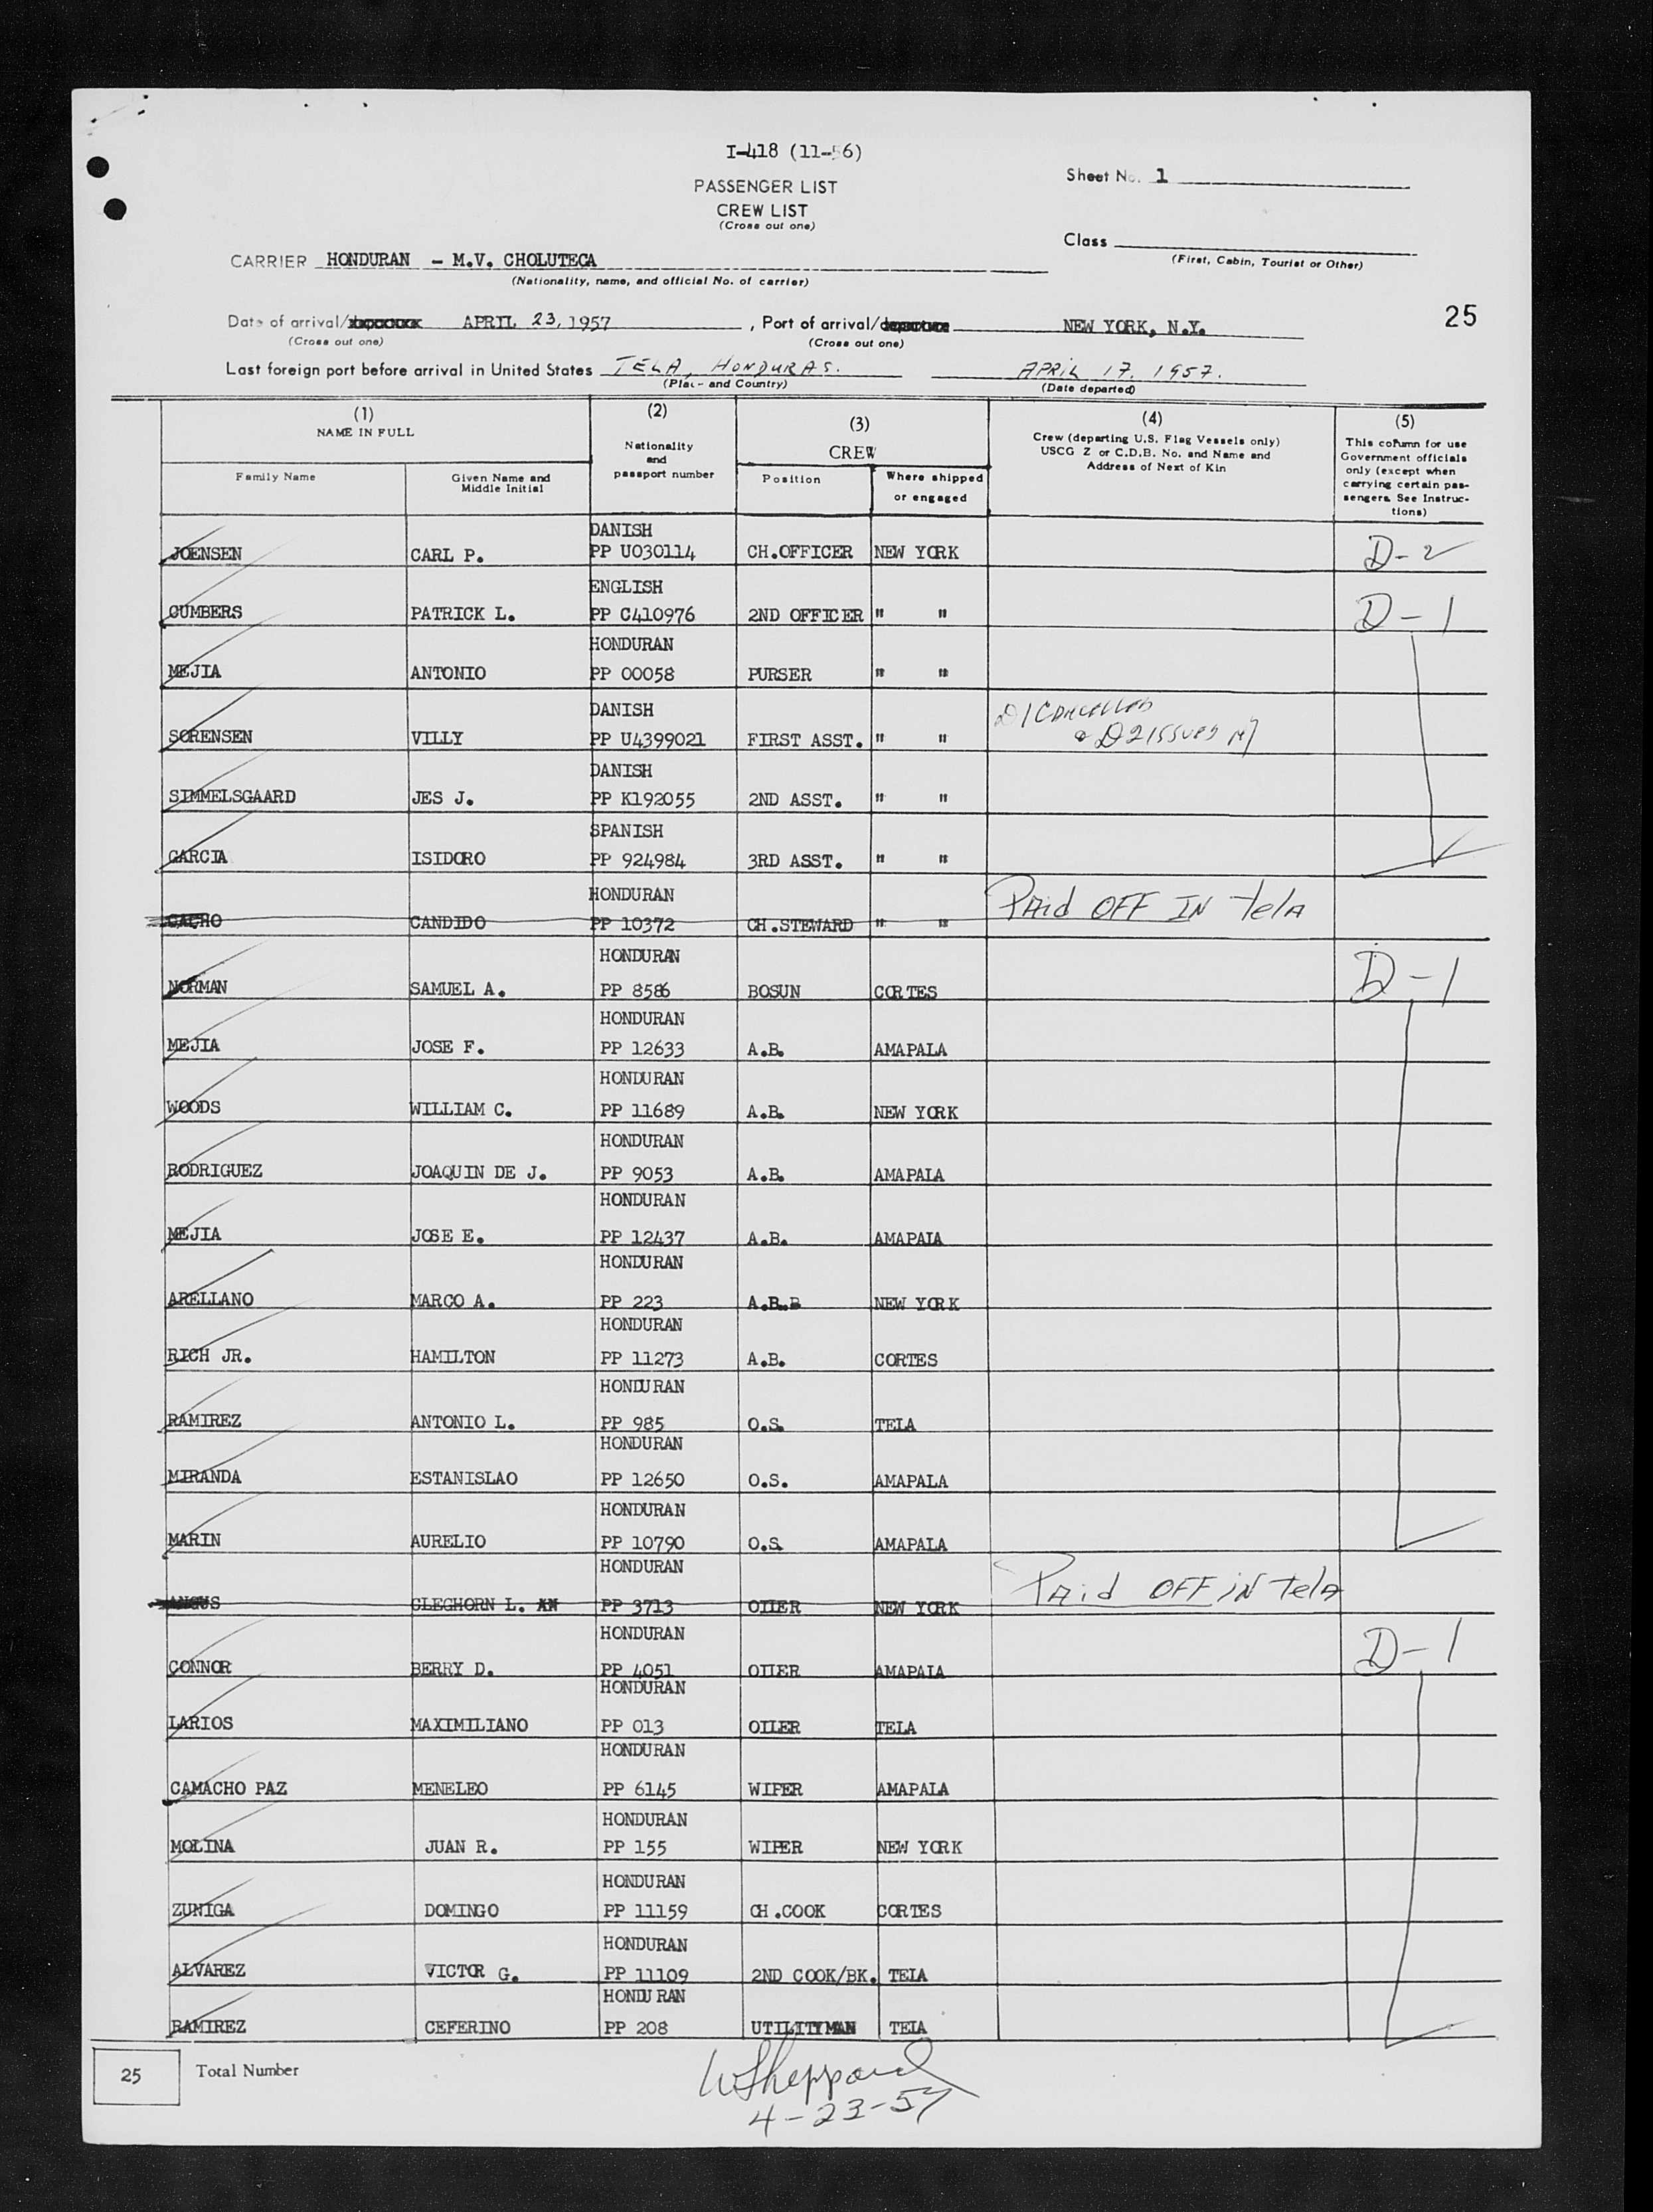 I-418 (11-56)
PASSENGER LIST
CREW LIST
(Cross out one)
Sheet No. 1
Class
(First, Cabin, Tourist or Other)
CARRIER HONDURAN - M.V. CHOLUTECA
(Nationality, name, and official No. of carrier)
25
Date of arrival/ APRIL 23, 1957, Port of arrival/departure NEW YORK, N.Y.
(Cross out one) (Cross out one)
Last foreign port before arrival in United States TELA, HONDURAS. APRIL 17. 1957.
(Place and Country) (Date departed)
(1) NAME IN FULL
Family Name
Given Name and Middle Initial
(2)
Nationality and passport number
(3)
CREW
Position
Where shipped or engaged
(4)
Crew (departing U.S. Flag Vessels only)
USCG Z or C.D.B. No. and Name and
Address of Next of Kin
(5)
This column for use
Government officials
only (except when
carrying certain pas-
sengers. See Instruc-
tions)
DANISH
JOENSEN CARL P. PP U030114 CH.OFFICER NEW YORK D-2
ENGLISH
CUMBERS PATRICK L. PP C410976 2ND OFFICER " " D-1
HONDURAN
MEJIA ANTONIO PP 00058 PURSER " "
DANISH D1 CANCELLED
SORENSEN VILLY PP U4399021 FIRST ASST. " " & D2 ISSUED
DANISH
SIMMELSGAARD JES J. PP K192055 2ND ASST. " "
SPANISH
GARCIA ISIDORO PP 924984 3RD ASST. " "
HONDURAN
CACHO CANDIDO PP 10372 CH.STEWARD " " PAid OFF IN telA
HONDURAN
NORMAN SAMUEL A. PP 8586 BOSUN CORTES D-1
HONDURAN
MEJIA JOSE F. PP 12633 A.B. AMAPALA
HONDURAN
WOODS WILLIAM C. PP 11689 A.B. NEW YORK
HONDURAN
RODRIGUEZ JOAQUIN DE J. PP 9053 A.B. AMAPALA
HONDURAN
MEJIA JOSE E. PP 12437 A.B. AMAPALA
HONDURAN
ARELLANO MARCO A. PP 223 A.B.B NEW YORK
HONDURAN
RICH JR. HAMILTON PP 11273 A.B. CORTES
HONDURAN
RAMIREZ ANTONIO L. PP 985 O.S. TELA
HONDURAN
MIRANDA ESTANISLAO PP 12650 O.S. AMAPALA
HONDURAN
MARIN AURELIO PP 10790 O.S. AMAPALA
HONDURAN
ANGUS CLEGHORN L. AN PP 3713 OILER NEW YORK PAid OFF iN telA
HONDURAN
CONNOR BERRY D. PP 4051 OILER AMAPALA D-1
HONDURAN
LARIOS MAXIMILIANO PP 013 OILER TELA
HONDURAN
CAMACHO PAZ MENELEO PP 6145 WIPER AMAPALA
HONDURAN
MOLINA JUAN R. PP 155 WIPER NEW YORK
HONDURAN
ZUNIGA DOMINGO PP 11159 CH.COOK CORTES
HONDURAN
ALVAREZ VICTOR G. PP 11109 2ND COOK/BK. TELA
HONDURAN
RAMIREZ CEFERINO PP 208 UTILITYMAN TELA
25 Total Number
W Sheppard
4-23-57